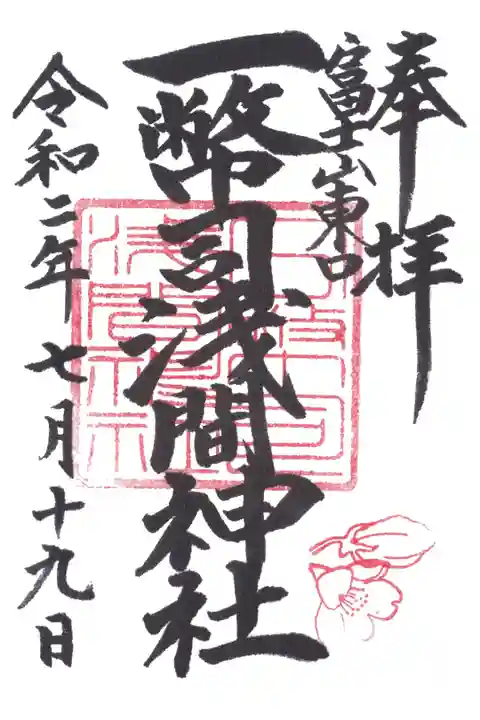 奉拝
富士山東口
一幣司浅間神社
令和二年 七月十九日